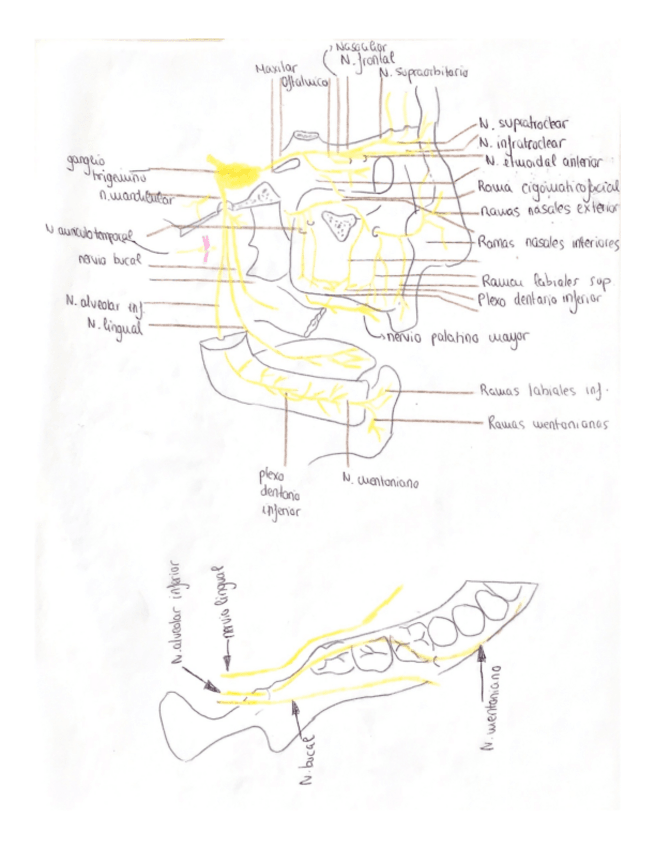 Nasociliar
N. frontal
Maxilar
Oftalmico
N. supraorbitario
N. supratroclear
N. infratroclear
N. etmoidal anterior
Rama cigomaticofacial
Ramas nasales exterior
Ramas nasales interiores
Ramas labiales sup
Plexo dentario inferior
nervio palatino mayor
Ramas labiales inf.
Ramas mentonianas
ganglio
trigemino
n. mandibular
N auriculotemporal
nervio bucal
N. alveolar inf
N. lingual
plexo
dentario
inferior
N. mentoniano
N. alveolar inferior
nervio lingual
N. bucal
N. mentoniano